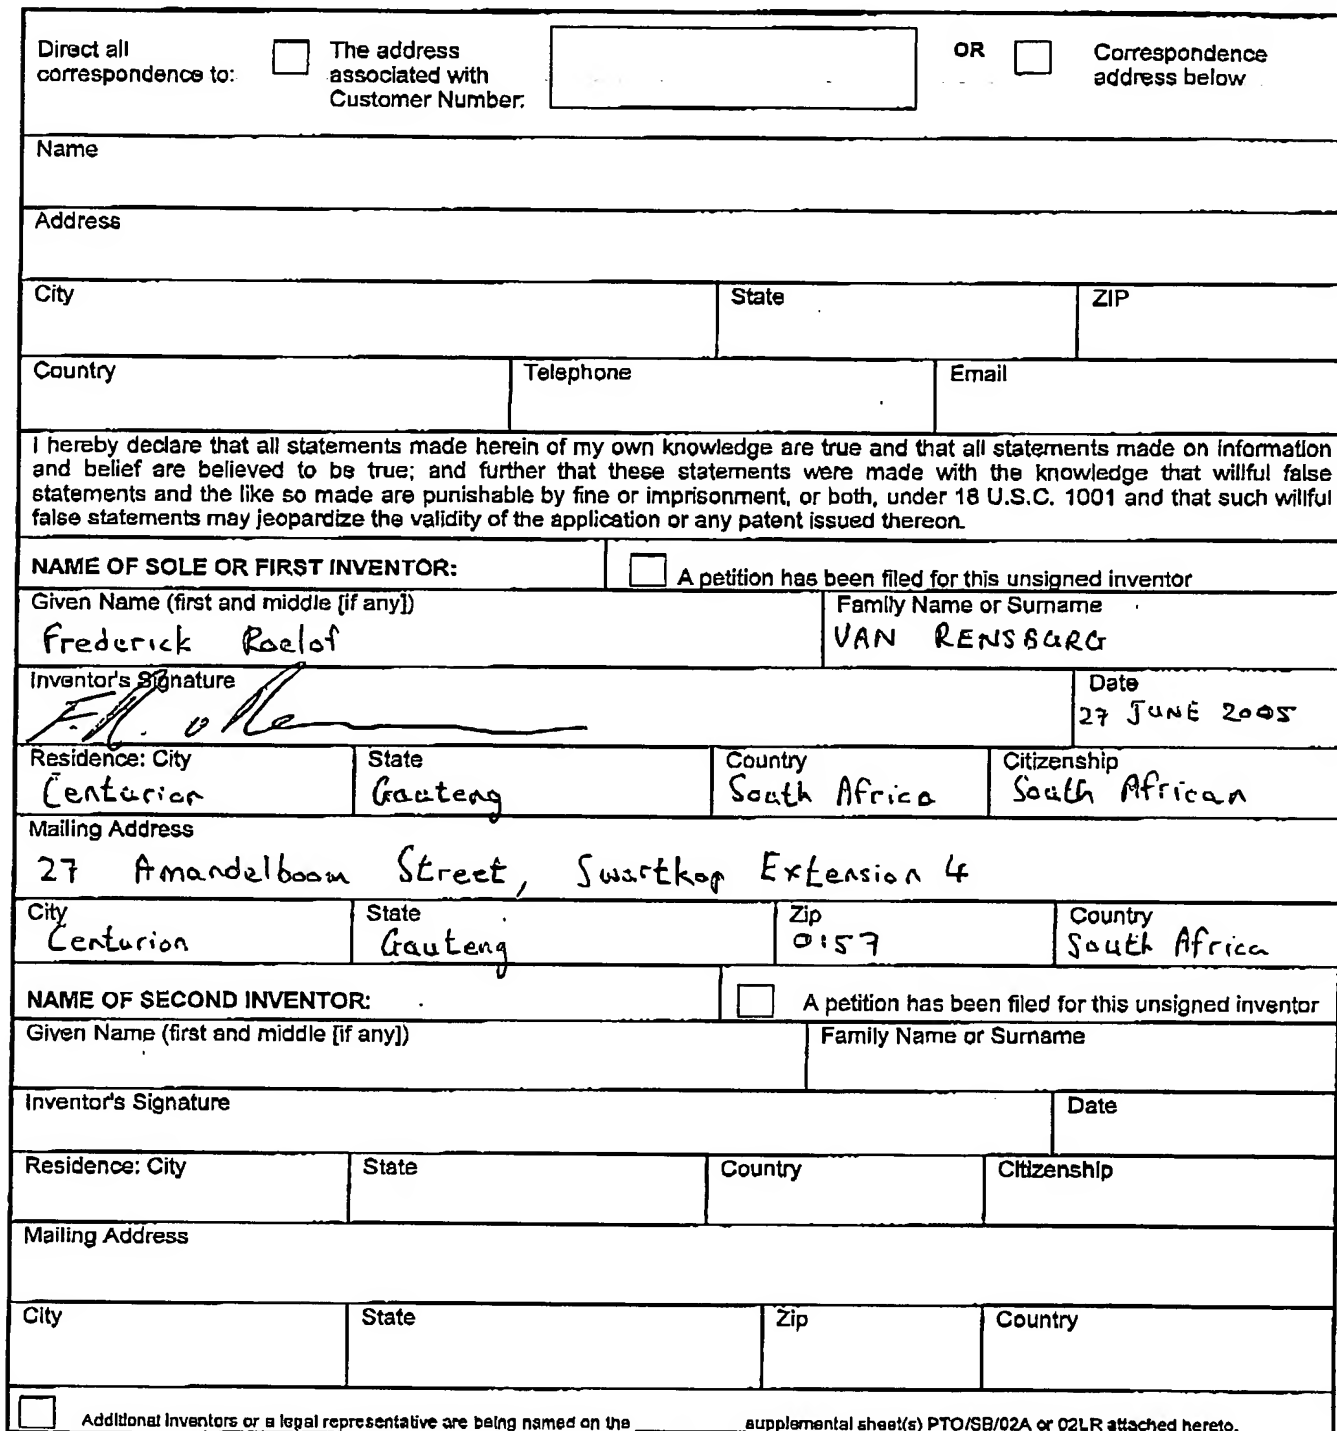 Direct all correspondence to:
The address associated with Customer Number:
OR
Correspondence address below
Name
Address
City State ZIP
Country Telephone Email
I hereby declare that all statements made herein of my own knowledge are true and that all statements made on information
and belief are believed to be true; and further that these statements were made with the knowledge that willful false
statements and the like so made are punishable by fine or imprisonment, or both, under 18 U.S.C. 1001 and that such willful
false statements may jeopardize the validity of the application or any patent issued thereon.
NAME OF SOLE OR FIRST INVENTOR: A petition has been filed for this unsigned inventor
Given Name (first and middle [if any]) Family Name or Surname
Frederick Roelof VAN RENSBURG
Inventor's Signature Date
27 JUNE 2005
Residence: City State Country Citizenship
Centurion Gauteng South Africa South African
Mailing Address
27 Amandelboom Street, Swartkop Extension 4
City State Zip Country
Centurion Gauteng 0157 South Africa
NAME OF SECOND INVENTOR: A petition has been filed for this unsigned inventor
Given Name (first and middle [if any]) Family Name or Surname
Inventor's Signature Date
Residence: City State Country Citizenship
Mailing Address
City State Zip Country
Additional inventors or a legal representative are being named on the ________ supplemental sheet(s) PTO/SB/02A or 02LR attached hereto.